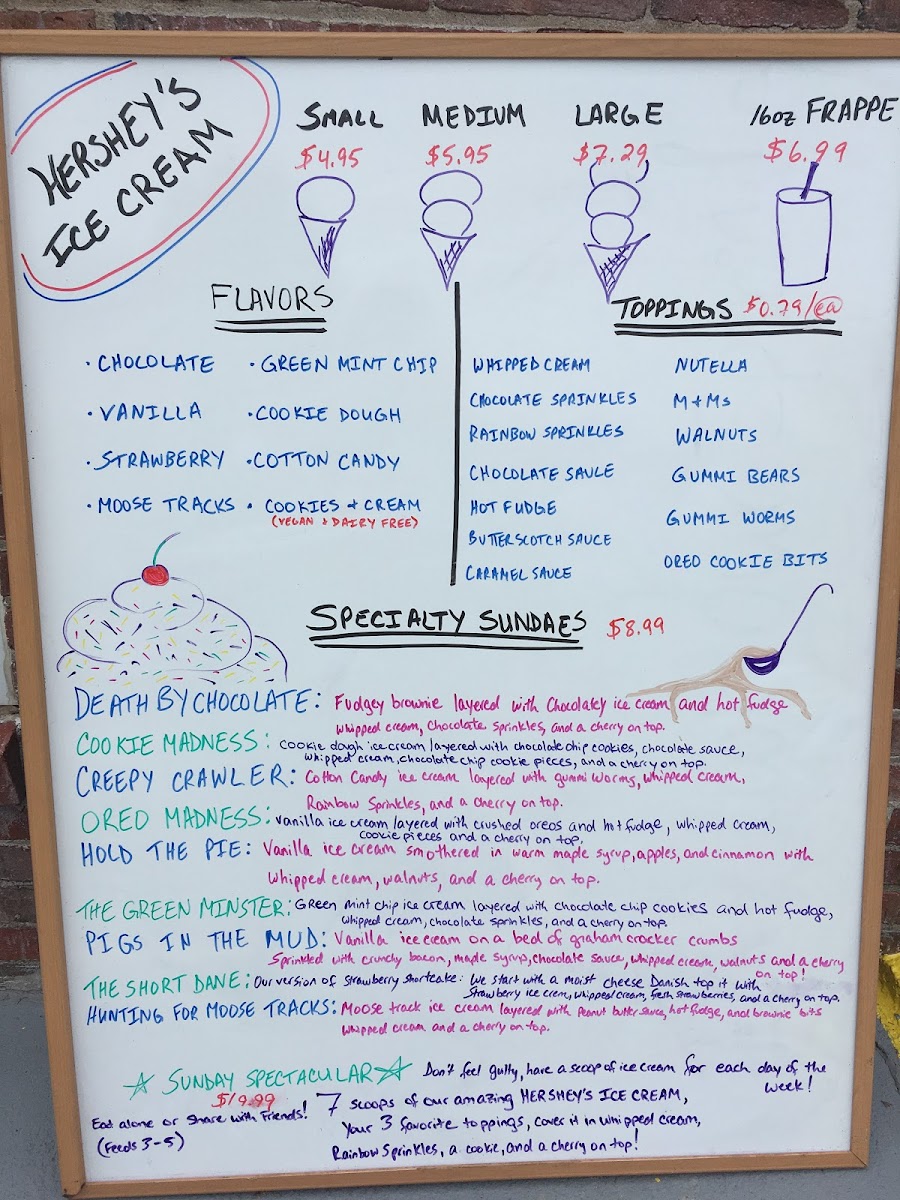 HERSHEY'S
ICE CREAM
SMALL MEDIUM LARGE 16oz FRAPPE
$4.95 $5.95 $7.29 $6.99
FLAVORS
• CHOCOLATE • GREEN MINT CHIP
• VANILLA • COOKIE DOUGH
• STRAWBERRY • COTTON CANDY
• MOOSE TRACKS • COOKIES + CREAM
(VEGAN + DAIRY FREE)
TOPPINGS $0.79/ea
WHIPPED CREAM NUTELLA
CHOCOLATE SPRINKLES M+Ms
RAINBOW SPRINKLES WALNUTS
CHOCOLATE SAUCE GUMMI BEARS
HOT FUDGE GUMMI WORMS
BUTTERSCOTCH SAUCE OREO COOKIE BITS
CARAMEL SAUCE
SPECIALTY SUNDAES $8.99
DEATH BY CHOCOLATE: Fudgey brownie layered with Chocolatey ice cream and hot fudge
whipped cream, Chocolate Sprinkles, and a cherry on top.
COOKIE MADNESS: cookie dough ice cream layered with chocolate chip cookies, chocolate sauce,
whipped cream, chocolate chip cookie pieces, and a cherry on top.
CREEPY CRAWLER: Cotton Candy ice cream layered with gummi worms, whipped cream,
Rainbow Sprinkles, and a cherry on top.
OREO MADNESS: vanilla ice cream layered with crushed oreos and hot fudge, whipped cream,
cookie pieces and a cherry on top.
HOLD THE PIE: Vanilla ice cream smothered in warm maple syrup, apples, and cinnamon with
whipped cream, walnuts, and a cherry on top.
THE GREEN MINSTER: Green mint chip ice cream layered with chocolate chip cookies and hot fudge,
whipped cream, chocolate sprinkles, and a cherry on top.
PIGS IN THE MUD: Vanilla ice cream on a bed of graham cracker crumbs
Sprinkled with crunchy bacon, maple syrup, chocolate sauce, whipped cream, walnuts and a cherry
on top!
THE SHORT DANE: Our version of Strawberry Shortcake. We start with a moist cheese Danish top it with
Strawberry ice crem, whipped cream, fresh strawberries, and a cherry on top.
HUNTING FOR MOOSE TRACKS: Moose track ice cream layered with Peanut butter sauce, hot fudge, and brownie bits
whipped cream and a cherry on top.
SUNDAY SPECTACULAR Don't feel guilty, have a scoop of ice cream for each day of the
week!
$19.99
7 scoops of our amazing HERSHEY'S ICE CREAM,
Eat alone or Share with Friends!
Your 3 favorite toppings, cover it in whipped cream,
(Feeds 3-5)
Rainbow Sprinkles, a cookie, and a cherry on top!